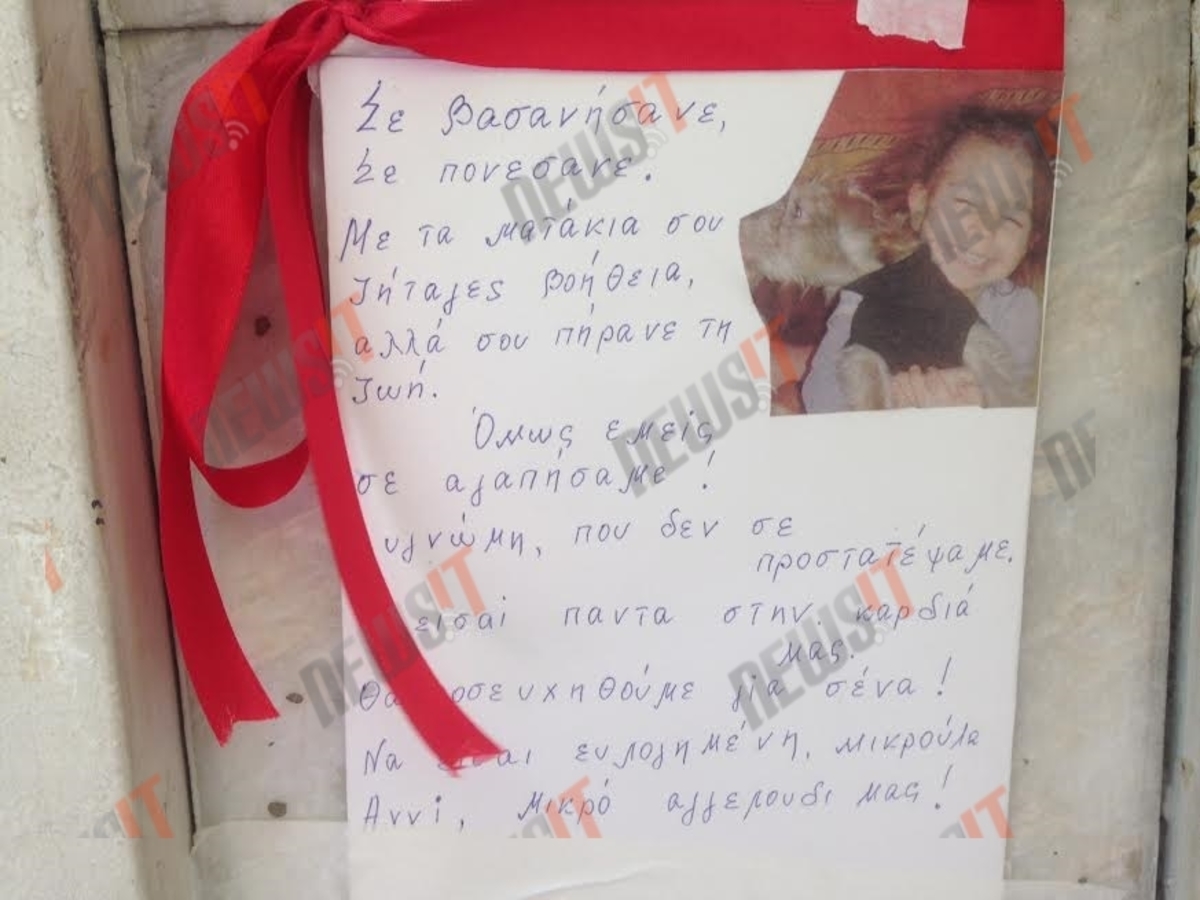 Σε βασανήσανε,
Σε πονεσανε.
Με τα ματάκια σου
Ζήταγες βοήθεια,
αλλά σου πήρανε τη
Ζωή.
Όμως εμείς
σε αγαπήσαμε!
υγνώμη, που δεν σε
προστατέψαμε.
εισαι παντα στην καρδιά
μας.
Θα οσευχηθούμε για σένα!
Να ευλογημένη, μικρούλα
Αννί, μικρό αγγελουδι μας!
NEWSIT
NEWSIT
NEWSIT
NEWSIT
NEWSIT
NEWSIT
NEWSIT